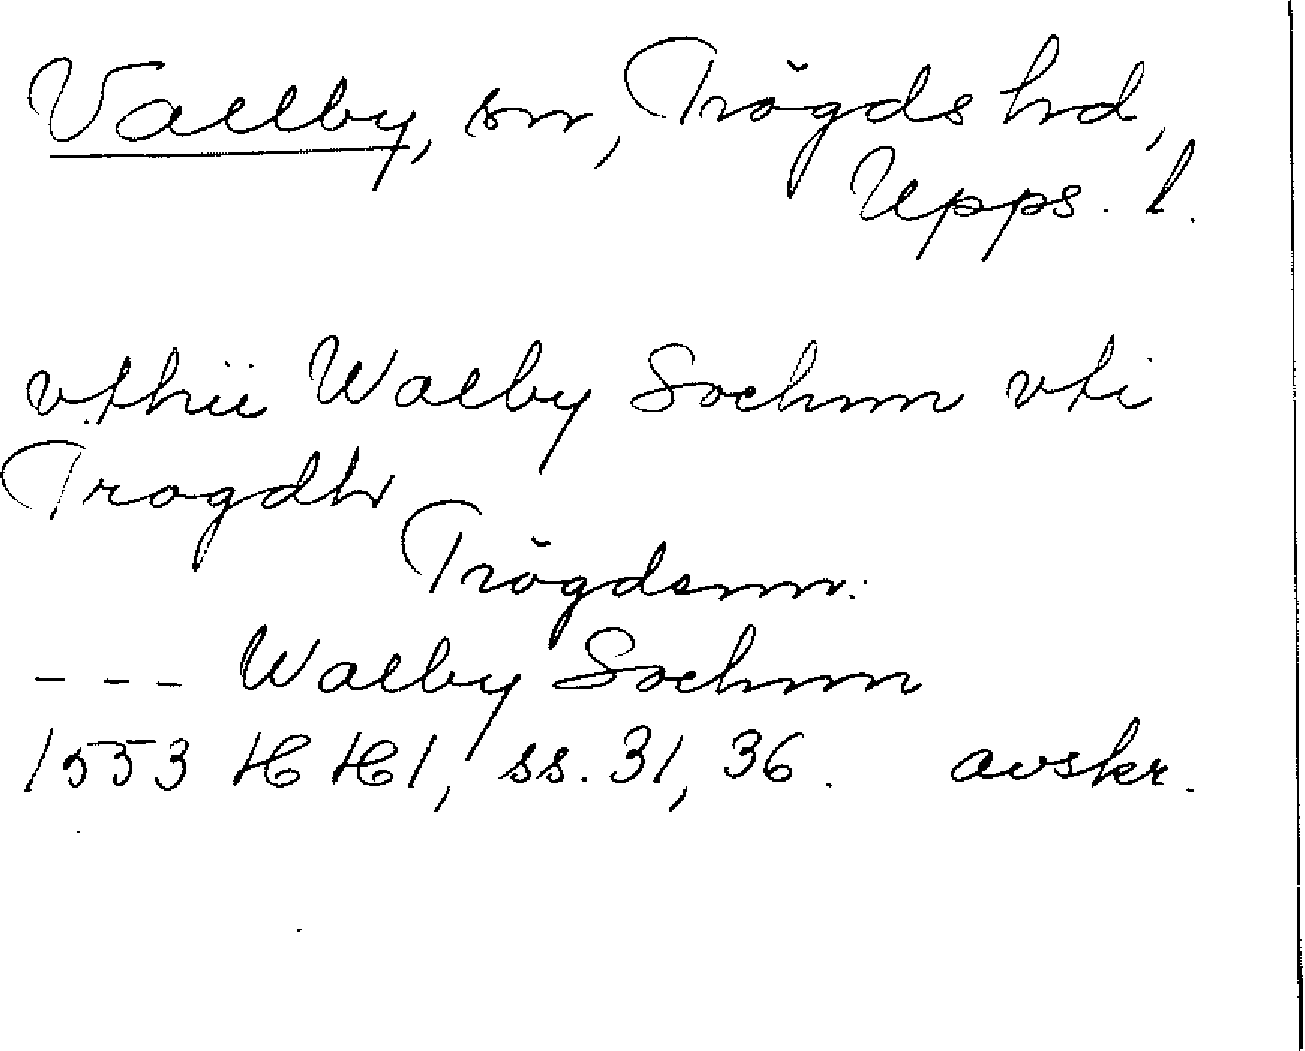 Vallby, sn, Trögds hd,
Upps. l.
vthii Walby Sochnn vti
Trogdh
Trögdsnn.
- - - Walby Sochnn
1553 HH 1, ss. 31, 36. avskr.